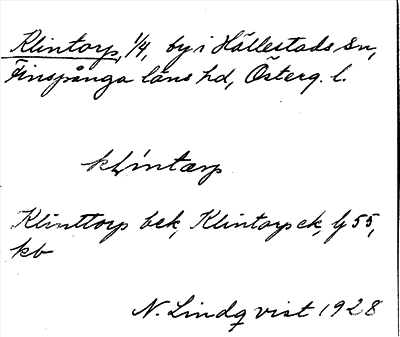 Klintorp, 1/4, by i Hällestads sn,
Finspånga läns hd, Österg. l.
klintærp
Klinttorp bek, Klintorp ek, lj 55,
kb
N. Lindqvist 1928